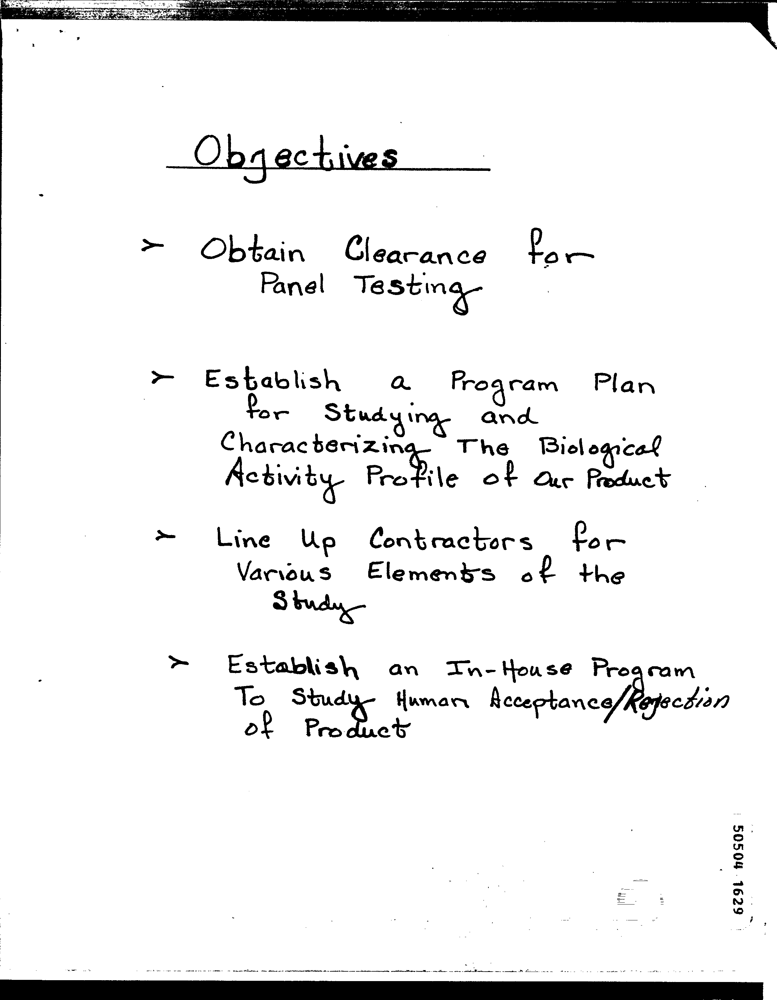 Objectives
> Obtain Clearance for
Panel Testing
> Establish a Program Plan
for Studying and
Characterizing The Biological
Activity Profile of Our Product
> Line Up Contractors for
Various Elements of the
Study
> Establish an In-House Program
To Study Human Acceptance/Rejection
of Product
50504 1629